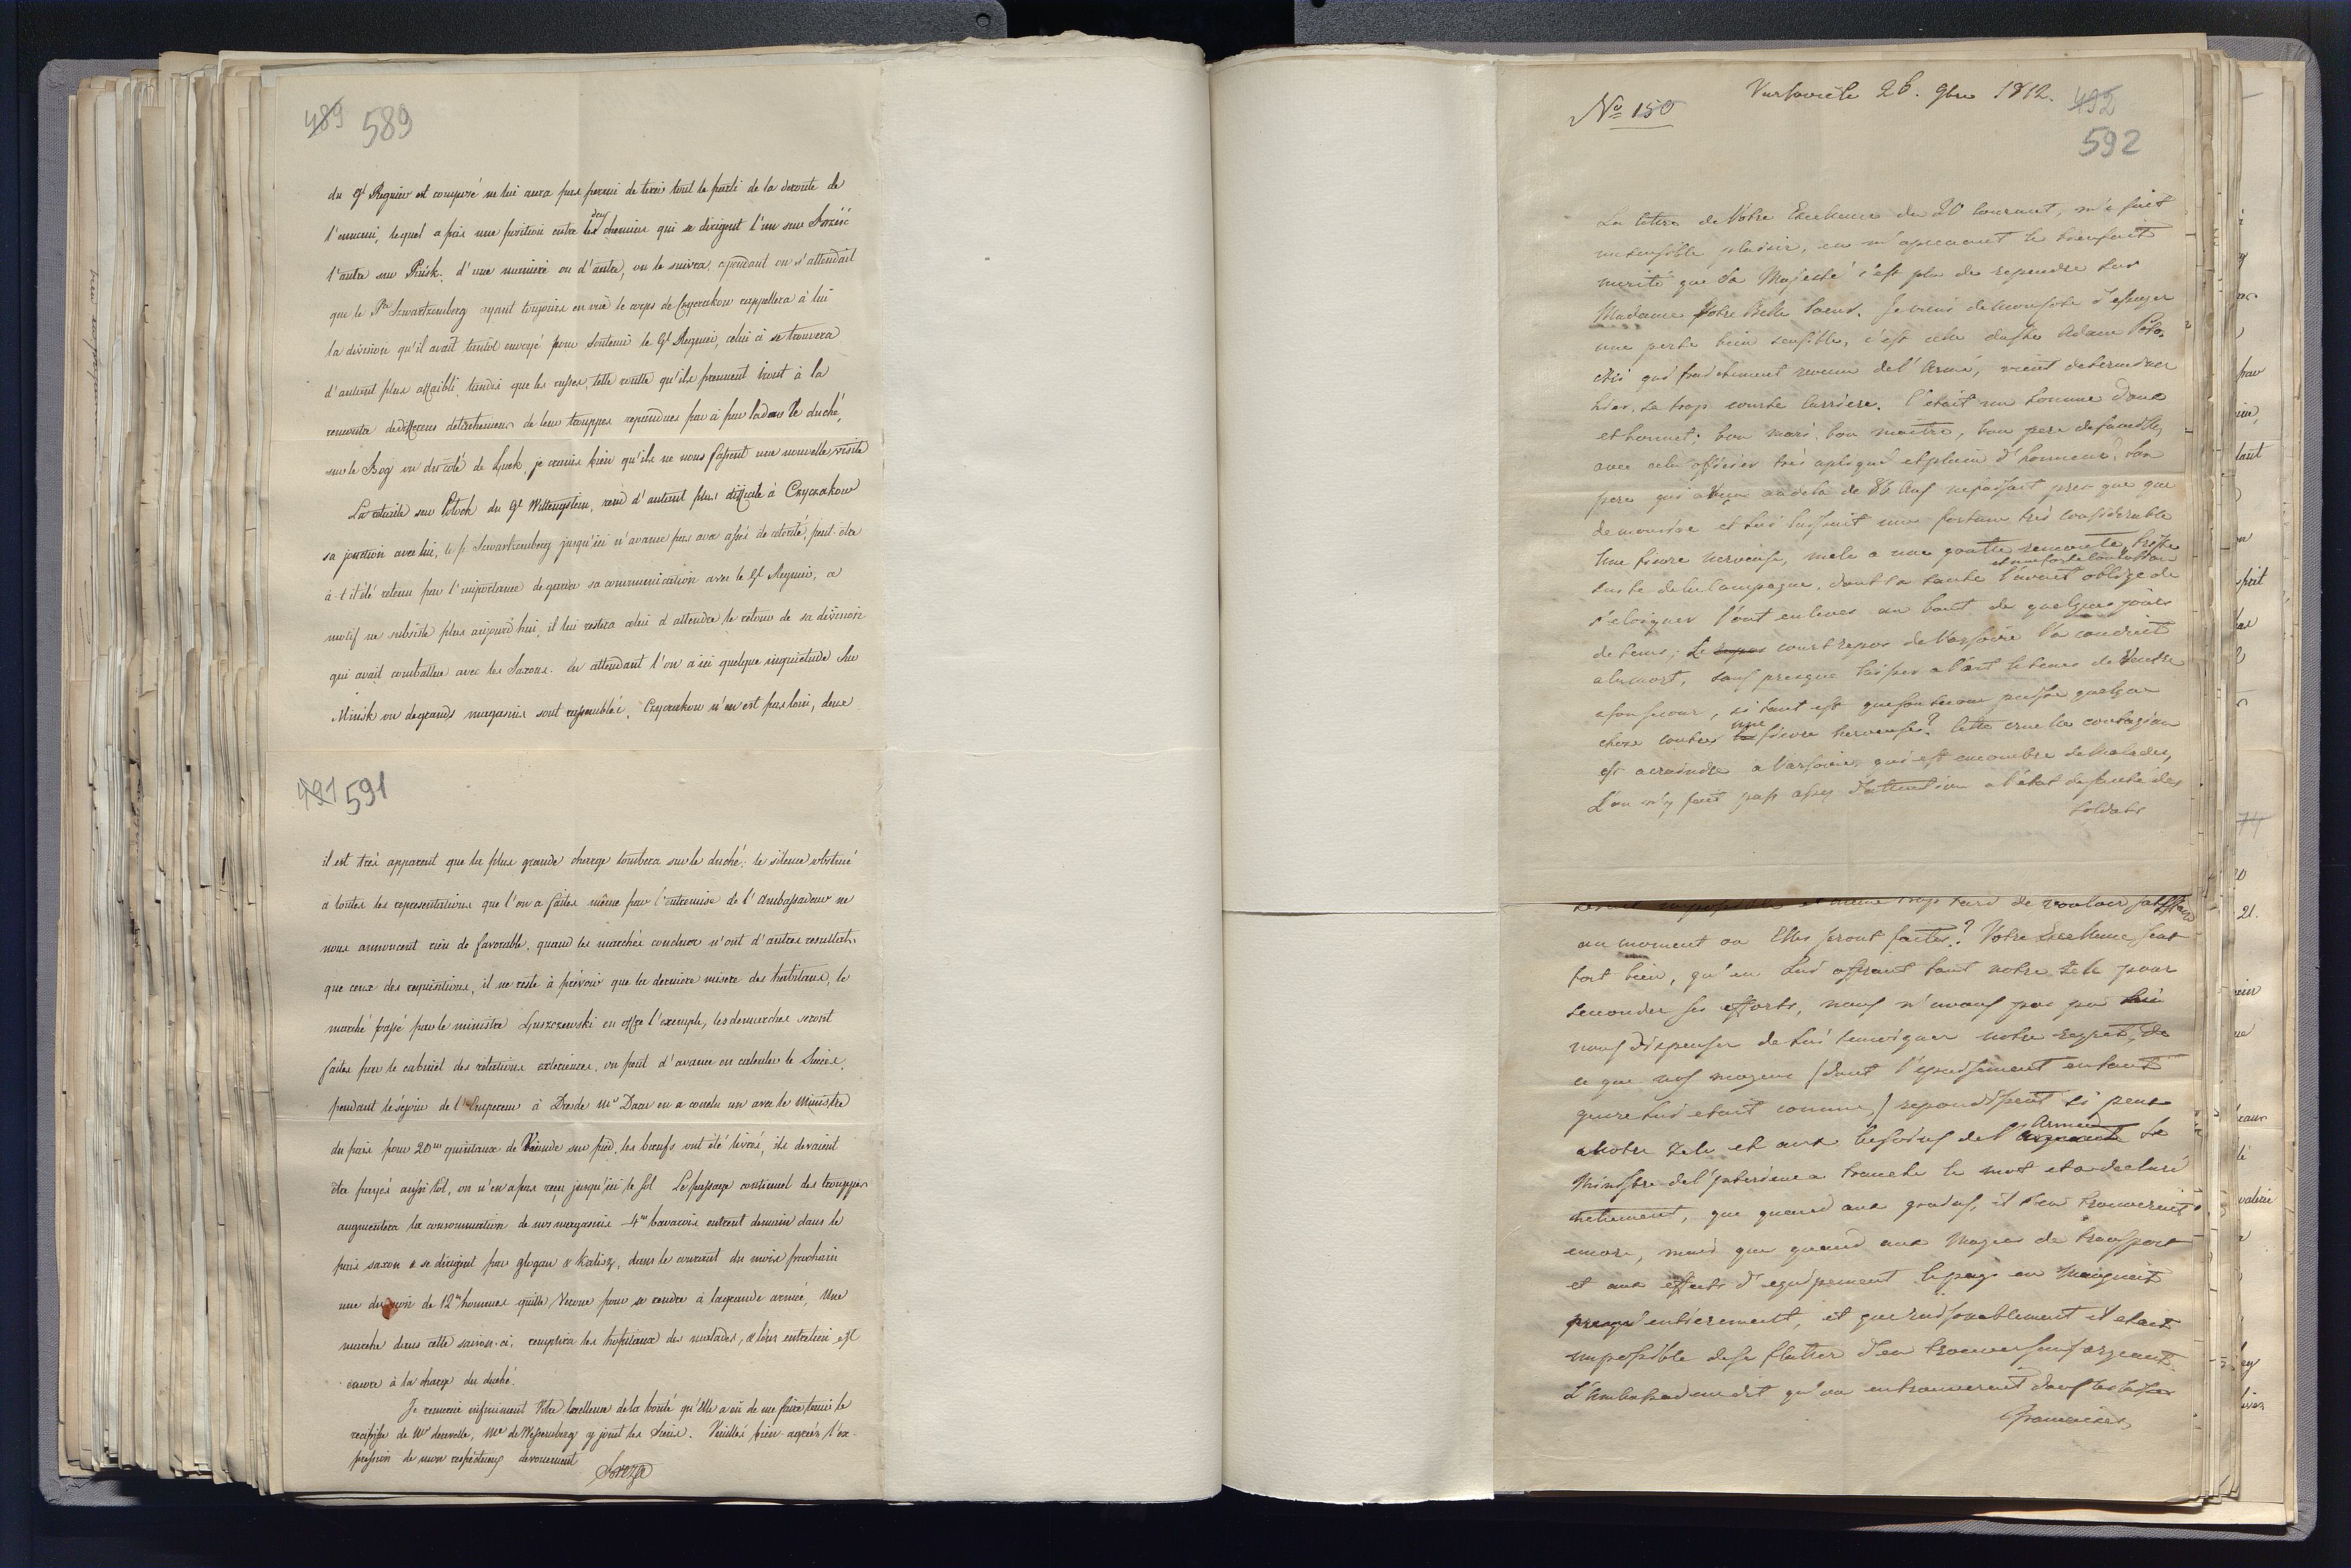 489 589
du gl Regnier est composé ne lui aura pas permi de tirer tout le parti de la deroute de
l'ennemi, lequel a pris une position entre les deux chemins qui se dirigent l'un sur Brześć
l'autre sur Pinsk. d'une maniere ou d'autre, on le suivra, cependant on s'attendait
que le Pce Schwartzemberg ayant toujours en vuë le corps de Czyczakow rappellera à lui
la division qu'il avait tantot envoyé pour soutenir le Gl Regnier, celui ci se trouvera
d'autant plus affaibli, tandis que les russes, telle route qu'ils prennent iront à la
rencontre de differens detachemens de leurs trouppes repandues par ci par la dans le duché,
sur le Bog ou du coté de Łuck, je crains bien qu'ils ne nous fassent une nouvelle visite
La retraite sur Polock du Gl Wittengstein, rend d'autant plus difficile à Czyczakow
sa jonction avec lui, le p. Schwartzemberg jusqu'ici n'avance pas avec assés de celerité, peut-etre
a-t-il été retenu par l'importance de garder sa communication avec le Gl Regnier, ce
motif ne subsiste plus aujourd'hui, il lui restera celui d'attendre le retour de sa division
qui avait combattue avec les Saxons. En attendant l'on a ici quelque inquietude sur
Minsk ou de grands magasins sont rassemblés, Czyczakow n'en est pas loin, deux
491 591
il est très apparent que la plus grande charge tombera sur le duché: le silence obstiné
à toutes les representations que l'on a faites même par l'entremise de l'Ambassadeur ne
nous annoncent rien de favorable, quand les marchés conclus n'ont d'autres resultats
que ceux des requisitions, il ne reste à prévoir que la derniere misere des habitans, le
marché passé par le ministre Łuszczewski en offre l'exemple, les demarches seront
faites par le cabinet des relations exterieures, on peut d'avance en calculer le Succès,
pendant le séjour de l'Empereur à Dresde Mr Daru en a conclu un avec le Ministre
du païs pour 20m quintaux de Viande sur pied, les bœufs ont été livrés, ils devaient
être payés aussi tôt, on n'en a pas reçu jusqu'ici le sol Le passage continuel des trouppes
augmentera la consommation de nos magasins 4m bavarois entrent demain dans le
païs saxon & se dirigent par glogau & Kalisz, dans le courant du mois prochain
une division de 12m hommes quitte Verone pour se rendre à la grande armée, Une
marche dans cette saison-ci, remplira les hopitaux des malades, & leur entretien est
encore à la charge du duché.
Je remercie infiniment Votre Excellence de la bonté qu'Elle a eü de me faire tenir le
recepisse de Mr , Mr de Wessemberg y joint les Siens. Veuillés bien agréer l'ex-
pression de mon respectueux devouement
Breza
No 150
Varsovie le 26. 9bre 1812.
492
592
La lettre de Votre Excellence du 20 courant, m'a fait
un sensible plaisir, en m'aprenant le bienfait
merité que Sa Majesté s'est plu de rependre sur
Madame Votre Belle Soeur. Je viens de mon coté d'essuyer
une perte bien sensible, c'est celle du Cte Adam Poto,
cki qui fraichement revenu de l'Armée, vient de terminer
hier, sa trop courte carriere. C'etait un homme doux
et honnet: bon mari, bon maitre, bon pere de famille,
avec cela officier très apliqué et plein d'honneur, son
pere qui a au dela de 86 ans ne faisait presque que
de mourir et lui laissait une fortune très considerable
Une fievre nerveuse, mele a une goutte remontée, triste
et une forte contusion
suite de la Campagne, dont sa santé l'avait obligé de
s'eloigner l'ont enlever au bout de quelques jours
de tems; Le court repos de Varsovie l'a conduit
a la mort, sans presque laisser a l'art le tems de venir
a son secour, si tant est que son secour puisse quelque
chose contre une fievre nerveuse? Cette cruelle contagion
est a craindre a Varsovie, qui est encombré de Malades,
L'on n'y fait pas assez d'attention a l'état de santé des
soldats
impossible et meme trop tard de vouloir
au moment ou Elles seront faites? Votre Excellence sent
fort bien, qu'en Lui offrant tout notre zele pour
seconder ses efforts, nous n'avons pas pu
nous dispenser de lui temoigner notre regret, de
ce que nos moyens (dont l'epuisement entant
que lui etait connu,) repondissent si peu
a notre zele et aux besoins de l'Armée Le
Ministre de l'Interieur a tranché le mot et a declaré
nettement, que quand aux , il s'en trouverait
encore, mais que quand aux Moyens de transport
et aux effects d'equipement le pays en Manquait
presqu'entierement, et que raisonablement il etait
impossible de se flatter d'en trouver sans argeant.
L'Ambassadeur dit qu'on en trouverait dans les
francaises